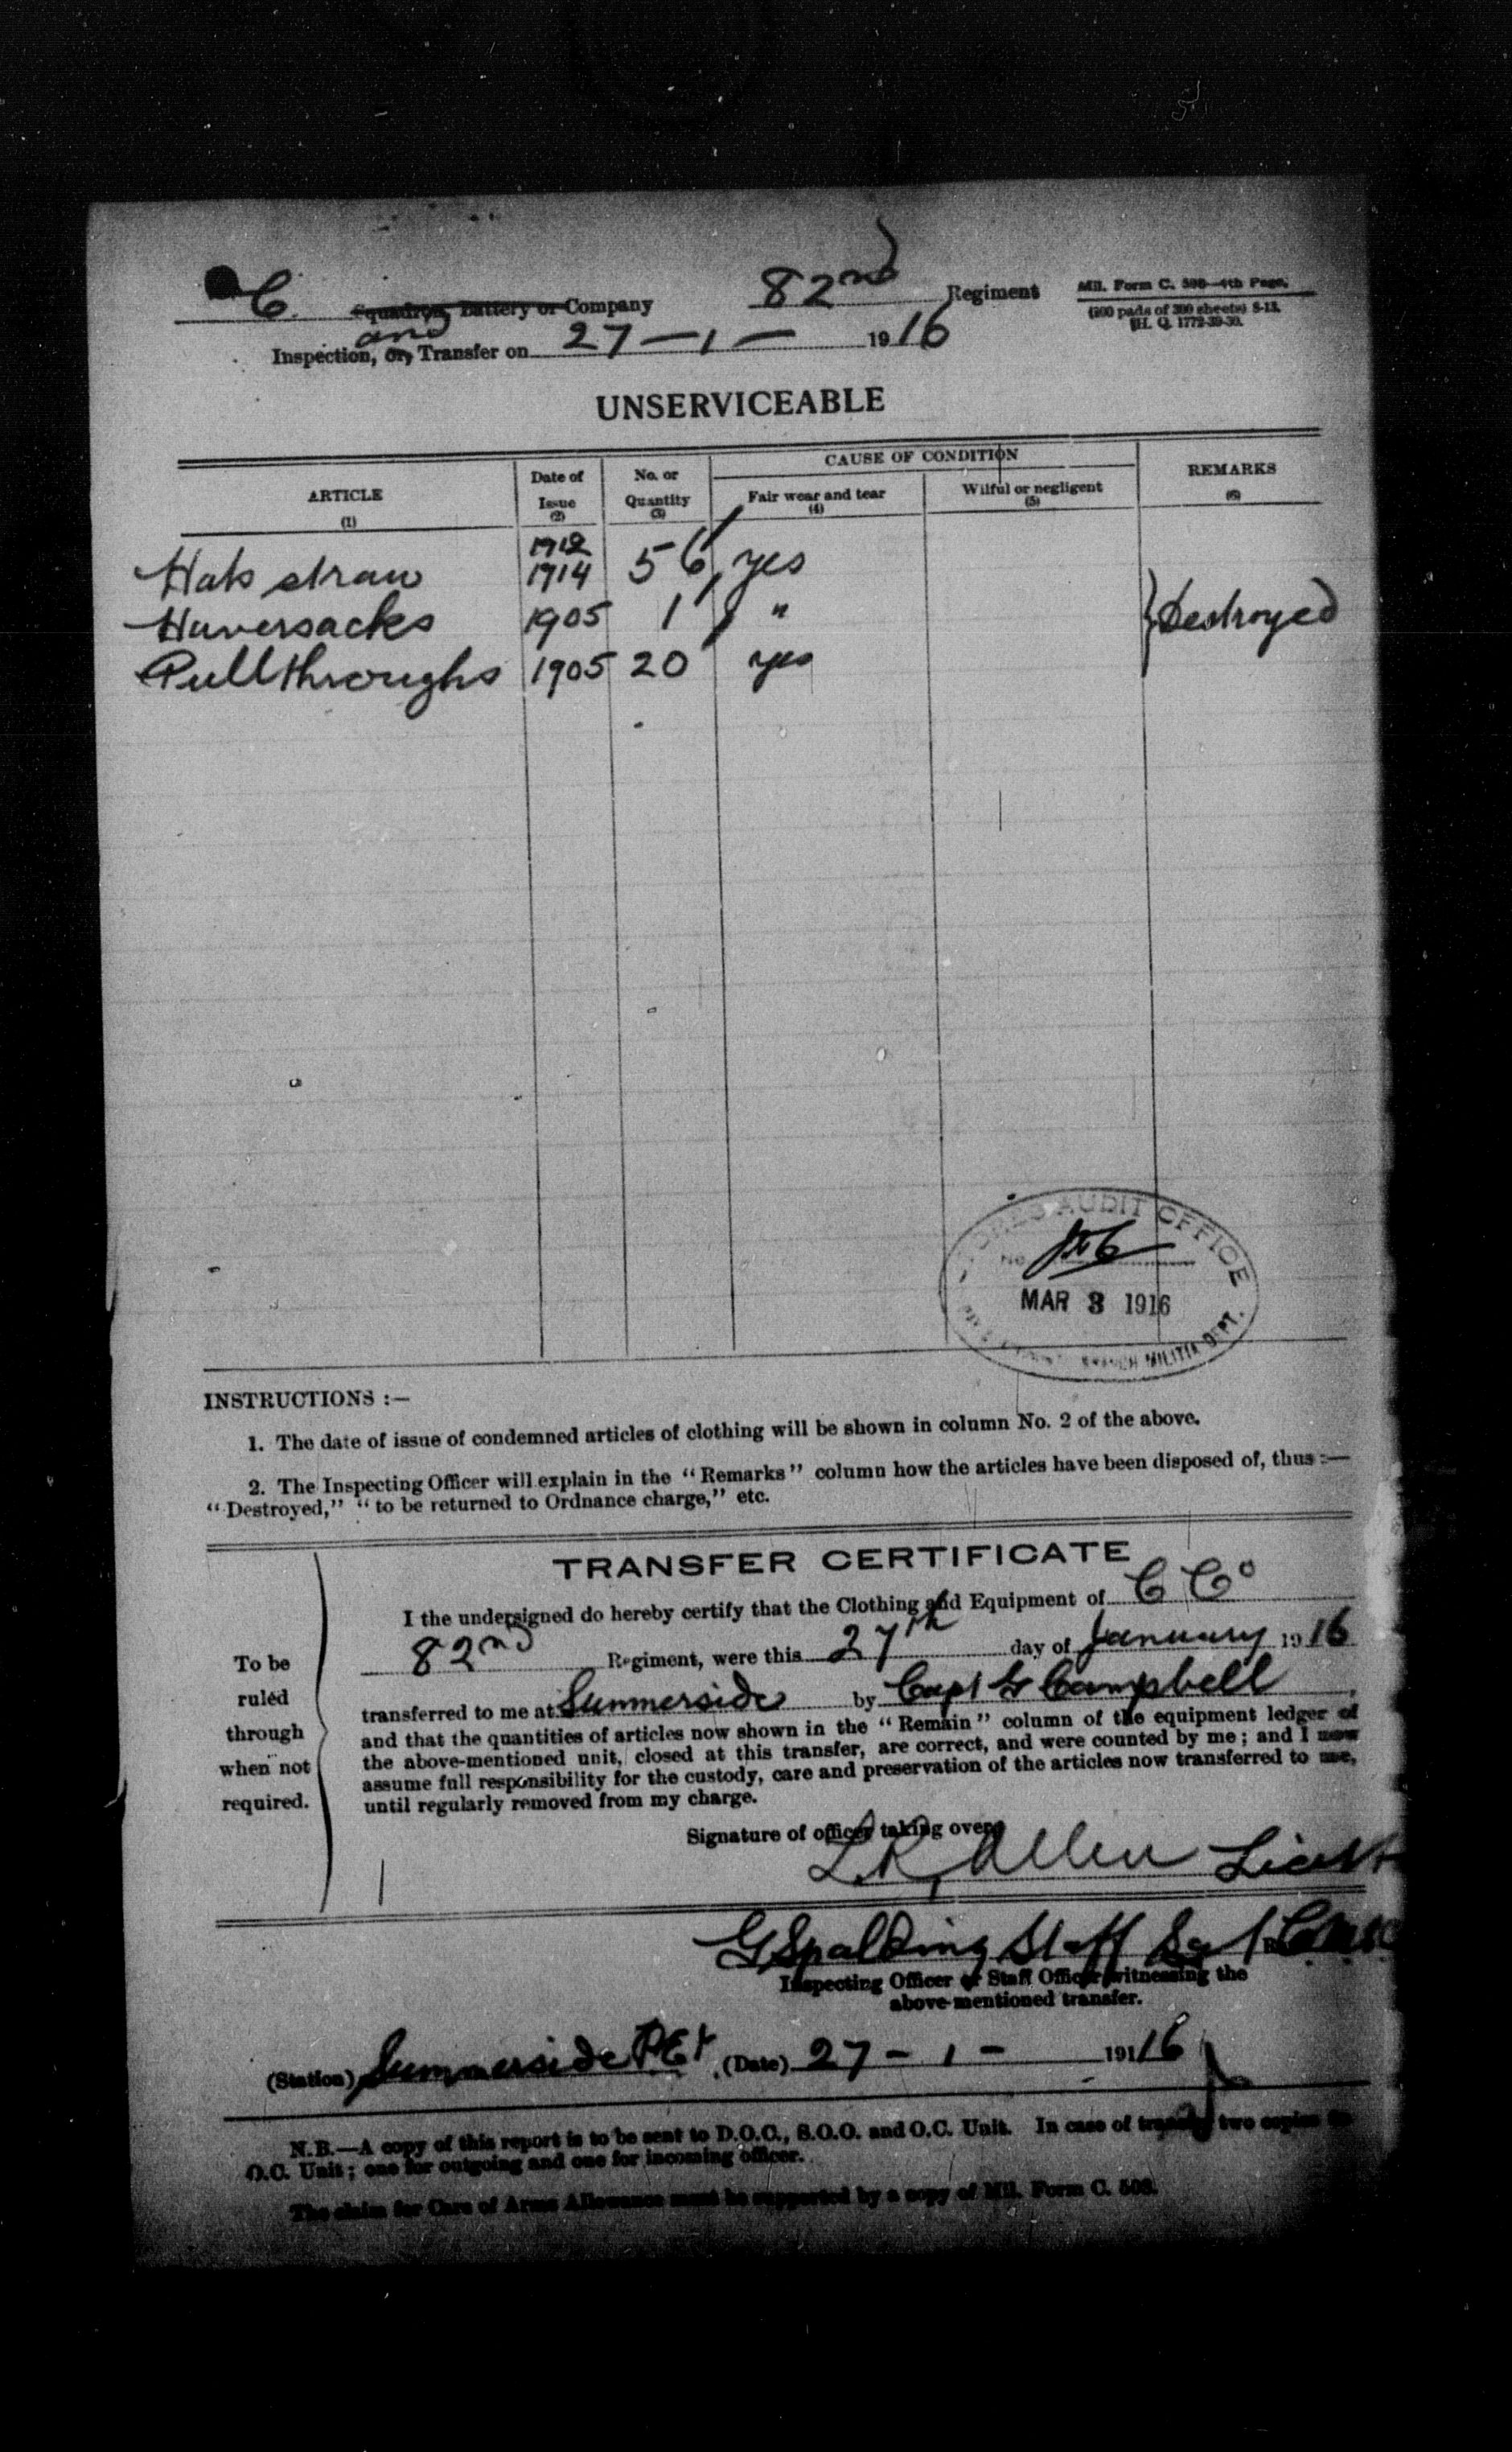 C. Squadron, Battery or Company 82nd Regiment
Mil. Form C. 508—4th Page.
(200 pads of 200 sheets) 8-13.
H. Q. 1772-39-30.
and
Inspection, or, Transfer on 27 – 1 – 1916
UNSERVICEABLE
ARTICLE (1) Date of Issue (2) No. or Quantity (3) CAUSE OF CONDITION Fair wear and tear (4) Wilful or negligent (5) REMARKS (6)
1912
Hats straw 1914 56 yes
Haversacks 1905 1 " } Destroyed
Pullthroughs 1905 20 yes
STORES AUDIT OFFICE
No
MAR 3 1916
BRANCH MILITIA DEPT.
INSTRUCTIONS :—
1. The date of issue of condemned articles of clothing will be shown in column No. 2 of the above.
2. The Inspecting Officer will explain in the “Remarks” column how the articles have been disposed of, thus :—
“Destroyed,” “to be returned to Ordnance charge,” etc.
TRANSFER CERTIFICATE
To be
ruled
through
when not
required.
I the undersigned do hereby certify that the Clothing and Equipment of C Co
82nd Regiment, were this 27th day of January 1916
transferred to me at Summerside by Capt G Campbell
and that the quantities of articles now shown in the “Remain” column of the equipment ledger of
the above-mentioned unit, closed at this transfer, are correct, and were counted by me; and I now
assume full responsibility for the custody, care and preservation of the articles now transferred to me,
until regularly removed from my charge.
Signature of officer taking over
L.R. Allen Lieut
G Spalding Staff Sgt
Inspecting Officer or Staff Officer witnessing the
above-mentioned transfer.
(Station) Summerside PEI (Date) 27 – 1 – 1916
N.B.—A copy of this report is to be sent to D.O.C., S.O.O. and O.C. Unit. In case of transfer two copies to
O.C. Unit; one for outgoing and one for incoming officer.
The claim for Care of Arms Allowance must be supported by a copy of Mil. Form C. 508.